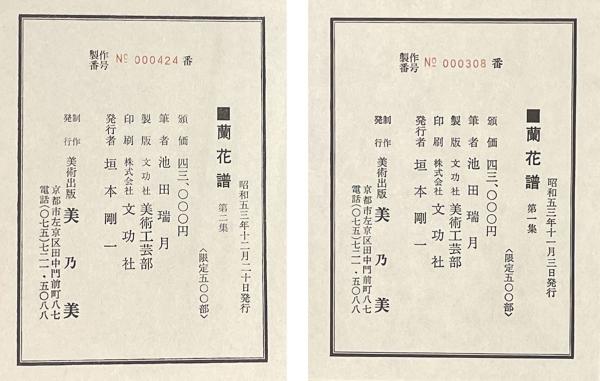 製作番号 № 000424 番
■蘭花譜 第二集
昭和五三年十二月二十日発行
〈限定五〇〇部〉
頒価 四三、〇〇〇円
筆者 池田瑞月
製版 文功社 美術工芸部
印刷 株式会社 文功社
発行者 垣本剛一
制作発行 美術出版 美乃美
京都市左京区田中門前町八七
電話(〇七五)七二一・五〇八八
製作番号 № 000308 番
■蘭花譜 第一集
昭和五三年十一月三日発行
〈限定五〇〇部〉
頒価 四三、〇〇〇円
筆者 池田瑞月
製版 文功社 美術工芸部
印刷 株式会社 文功社
発行者 垣本剛一
制作発行 美術出版 美乃美
京都市左京区田中門前町八七
電話(〇七五)七二一・五〇八八